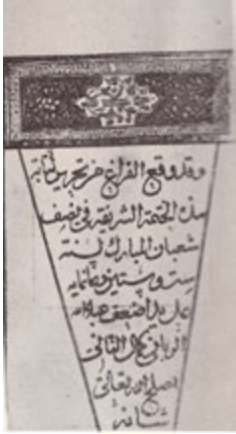 وقد وقع الفراغ من تحرير كتابة
هذه الختمة الشريفة في نصف
شعبان المبارك لسنة
ست وستين وثمانمايه
على يد اضعف عباد الله
كمال الثاني
اصلح الله تعالى
شانه